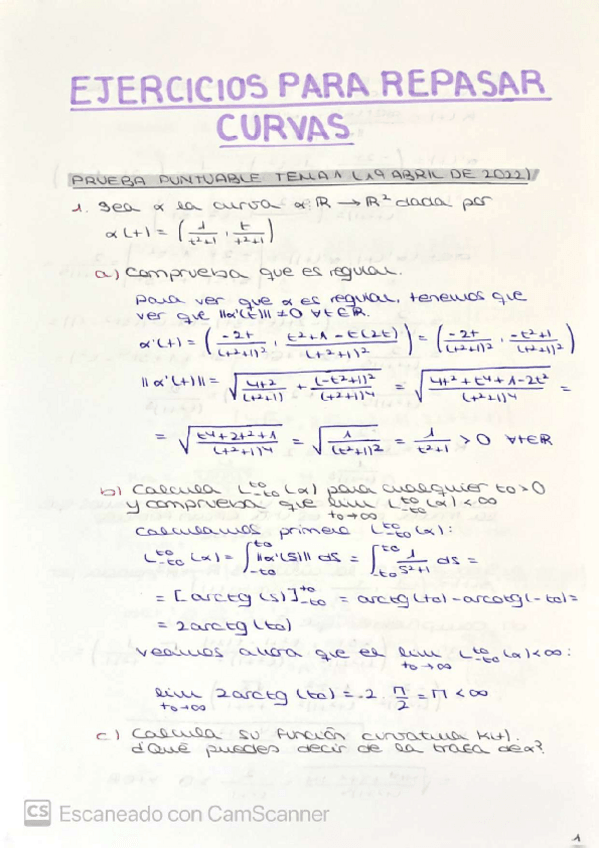 EJERCICIOS PARA REPASAR
CURVAS
PRUEBA PUNTUABLE TEMA 1 (19 ABRIL DE 2022)
1. Sea α la curva α: ℝ → ℝ² dada por
α(t) = (1/(t²+1), t/(t²+1))
a) Comprueba que es regular.
Para ver que α es regular, tenemos que
ver que ||α'(t)|| ≠ 0 ∀t∈ℝ.
α'(t) = (-2t/(t²+1)², (t²+1-t(2t))/(t²+1)²) = (-2t/(t²+1)², (-t²+1)/(t²+1)²)
||α'(t)|| = √(4t²/(t²+1) + (-t²+1)²/(t²+1)⁴) = √((4t²+t⁴+1-2t²)/(t²+1)⁴) =
= √((t⁴+2t²+1)/(t²+1)⁴) = √(1/(t²+1)²) = 1/(t²+1) > 0 ∀t∈ℝ
b) Calcula L_{-t₀}^{t₀}(α) para cualquier t₀>0
y comprueba que lim_{t₀→∞} L_{-t₀}^{t₀}(α) < ∞
Calculamos primero L_{-t₀}^{t₀}(α):
L_{-t₀}^{t₀}(α) = ∫_{-t₀}^{t₀} ||α'(s)|| ds = ∫_{-t₀}^{t₀} 1/(s²+1) ds =
= [arctg(s)]_{-t₀}^{t₀} = arctg(t₀) - arcotg(-t₀) =
= 2arctg(t₀)
Veamos ahora que el lim_{t₀→∞} L_{-t₀}^{t₀}(α) < ∞:
lim_{t₀→∞} 2arctg(t₀) = 2 · π/2 = π < ∞
c) Calcula su función curvatura K(t).
¿Qué puedes decir de la traza de α?
CS Escaneado con CamScanner
1